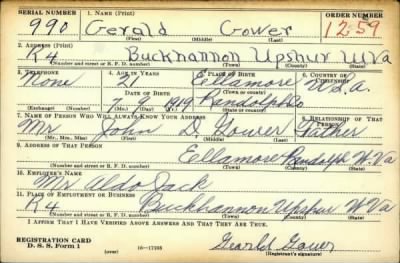 SERIAL NUMBER 1. NAME (Print) ORDER NUMBER
990 Gerald Gower 1259
(First) (Middle) (Last)
2. ADDRESS (Print)
R4 Buckhannon Upshur W Va
(Number and street or R. F. D. number) (Town) (County) (State)
3. TELEPHONE 4. AGE IN YEARS 5. PLACE OF BIRTH 6. COUNTRY OF CITIZENSHIP
None 21 Ellamore U.S.a.
DATE OF BIRTH
1919 Randolph Co
(Exchange) (Number) (Mo.) (Day) (Yr.) (State or country)
7. NAME OF PERSON WHO WILL ALWAYS KNOW YOUR ADDRESS 8. RELATIONSHIP OF THAT PERSON
Mr John D. Gower Father
(Mr., Mrs., Miss) (First) (Middle) (Last)
9. ADDRESS OF THAT PERSON
Ellamore Randolph W.Va
(Number and street or R. F. D. number) (Town) (County) (State)
10. EMPLOYER'S NAME
Mr Aldo Jack
11. PLACE OF EMPLOYMENT OR BUSINESS
R4 Buckhannon Upshur W Va
(Number and street or R. F. D. number) (Town) (County) (State)
I AFFIRM THAT I HAVE VERIFIED ABOVE ANSWERS AND THAT THEY ARE TRUE.
REGISTRATION CARD
D. S. S. Form 1 (over) Gearld Gower
(Registrant's signature)